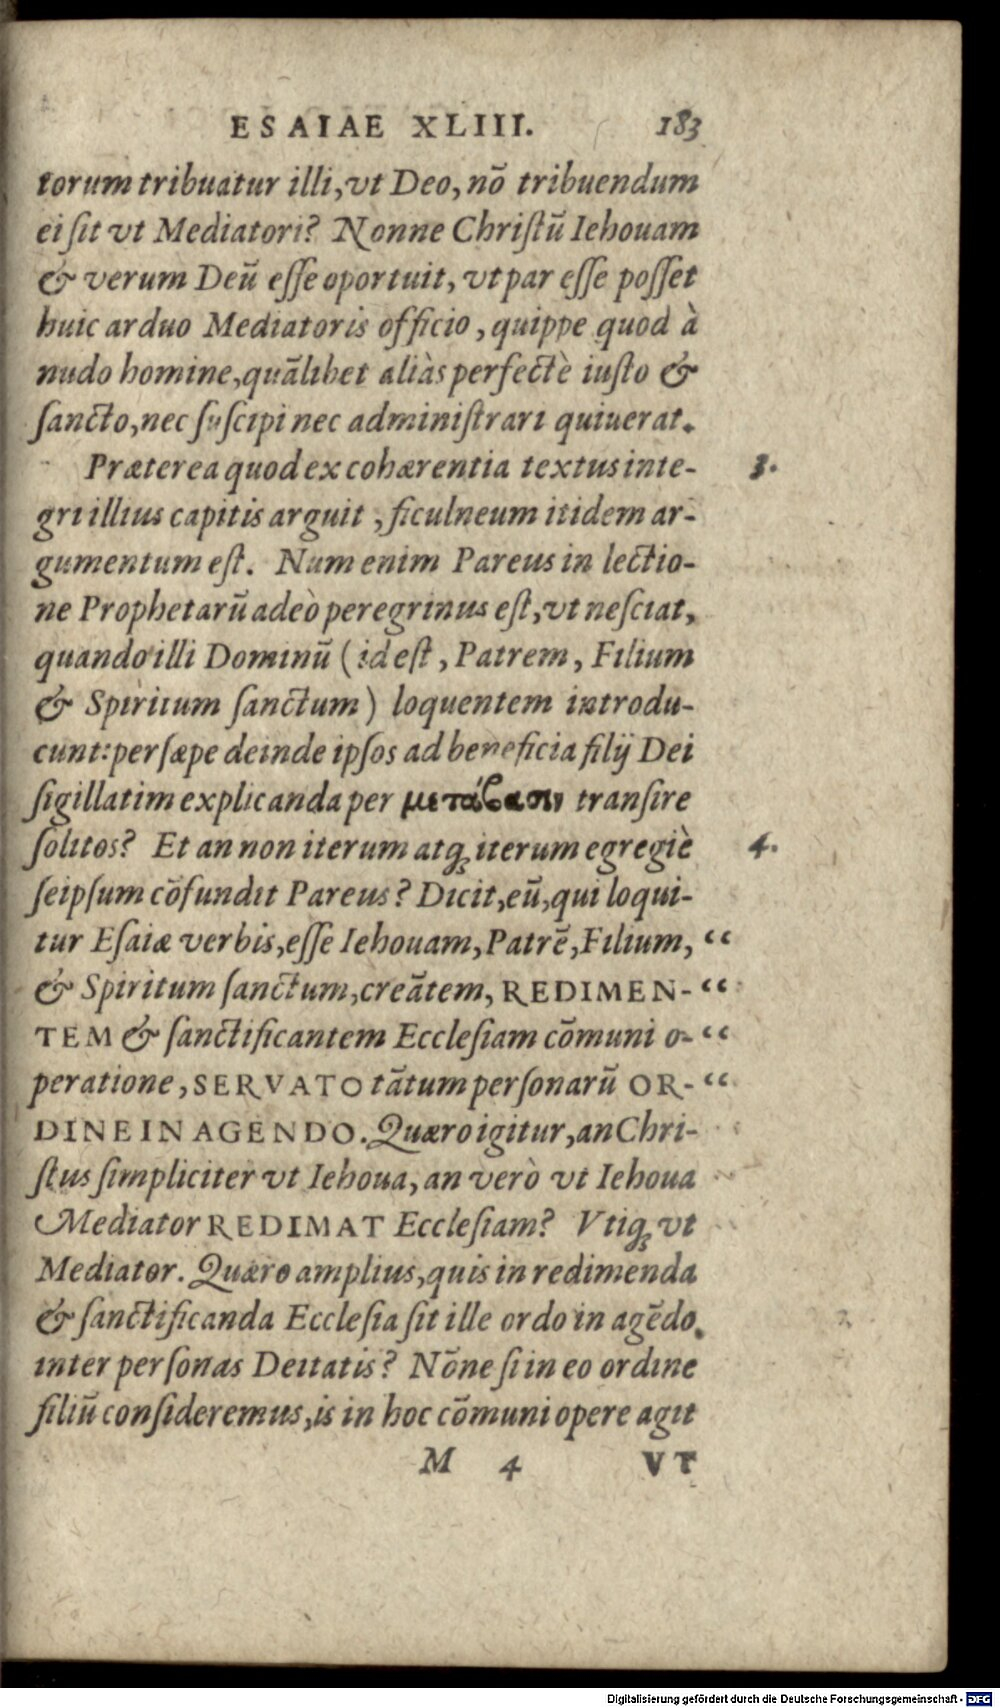 ESAIAE XLIII. 183
torum tribuatur illi, vt Deo, nō tribuendum
ei ſit vt Mediatori? Nonne Chriſtū Iehouam
& verum Deū eſſe oportuit, vt par eſſe poſſet
huic arduo Mediatoris officio, quippe quod à
nudo homine, quālibet aliàs perfectè iuſto &
ſancto, nec ſuſcipi nec adminiſtrari quiuerat.
Præterea quod ex cohærentia textus inte- 3.
gri illius capitis arguit, ficulneum itidem ar-
gumentum eſt. Num enim Pareus in lectio-
ne Prophetarū adeò peregrinus eſt, vt neſciat,
quando illi Dominū (id eſt, Patrem, Filium
& Spiritum ſanctum) loquentem introdu-
cunt: perſæpe deinde ipſos ad beneficia filij Dei
ſigillatim explicanda per μετάβασιν tranſire
ſolitos? Et an non iterum atq̨ iterum egregiè 4.
ſeipſum cōfundit Pareus? Dicit, eū, qui loqui-
tur Eſaiæ verbis, eſſe Iehouam, Patrē, Filium, “
& Spiritum ſanctum, creātem, REDIMEN- “
TEM & ſanctificantem Eccleſiam cōmuni o- “
peratione, SERVATO tātum perſonarū OR- “
DINE IN AGENDO. Quæro igitur, an Chri-
ſtus ſimpliciter vt Iehoua, an verò vt Iehoua
Mediator REDIMAT Eccleſiam? Vtiq̨ vt
Mediator. Quæro amplius, quis in redimenda
& ſanctificanda Eccleſia ſit ille ordo in agēdo
inter perſonas Deitatis? Nōne ſi in eo ordine
filiū conſideremus, is in hoc cōmuni opere agit
M 4 VT
Digitalisierung gefördert durch die Deutsche Forschungsgemeinschaft - DFG